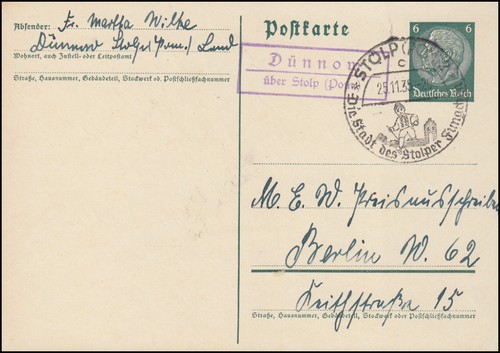 Absender: Fr. Martha Wilke
Dünnow Stolp (Pom.) Land
Wohnort, auch Zustell- oder Leitpostamt
Straße, Hausnummer, Gebäudeteil, Stockwerk od. Postschließfachnummer
Postkarte
6 6
Deutsches Reich
Dünnow
über Stolp (Pom
STOLP
c
25.11.35
Die Stadt des Stolper Jungchen
M. E. W. Preisausschreiben
Berlin W. 62
Keithstraße 15
Straße, Hausnummer, Gebäudeteil, Stockwerk oder Postschließfachnummer